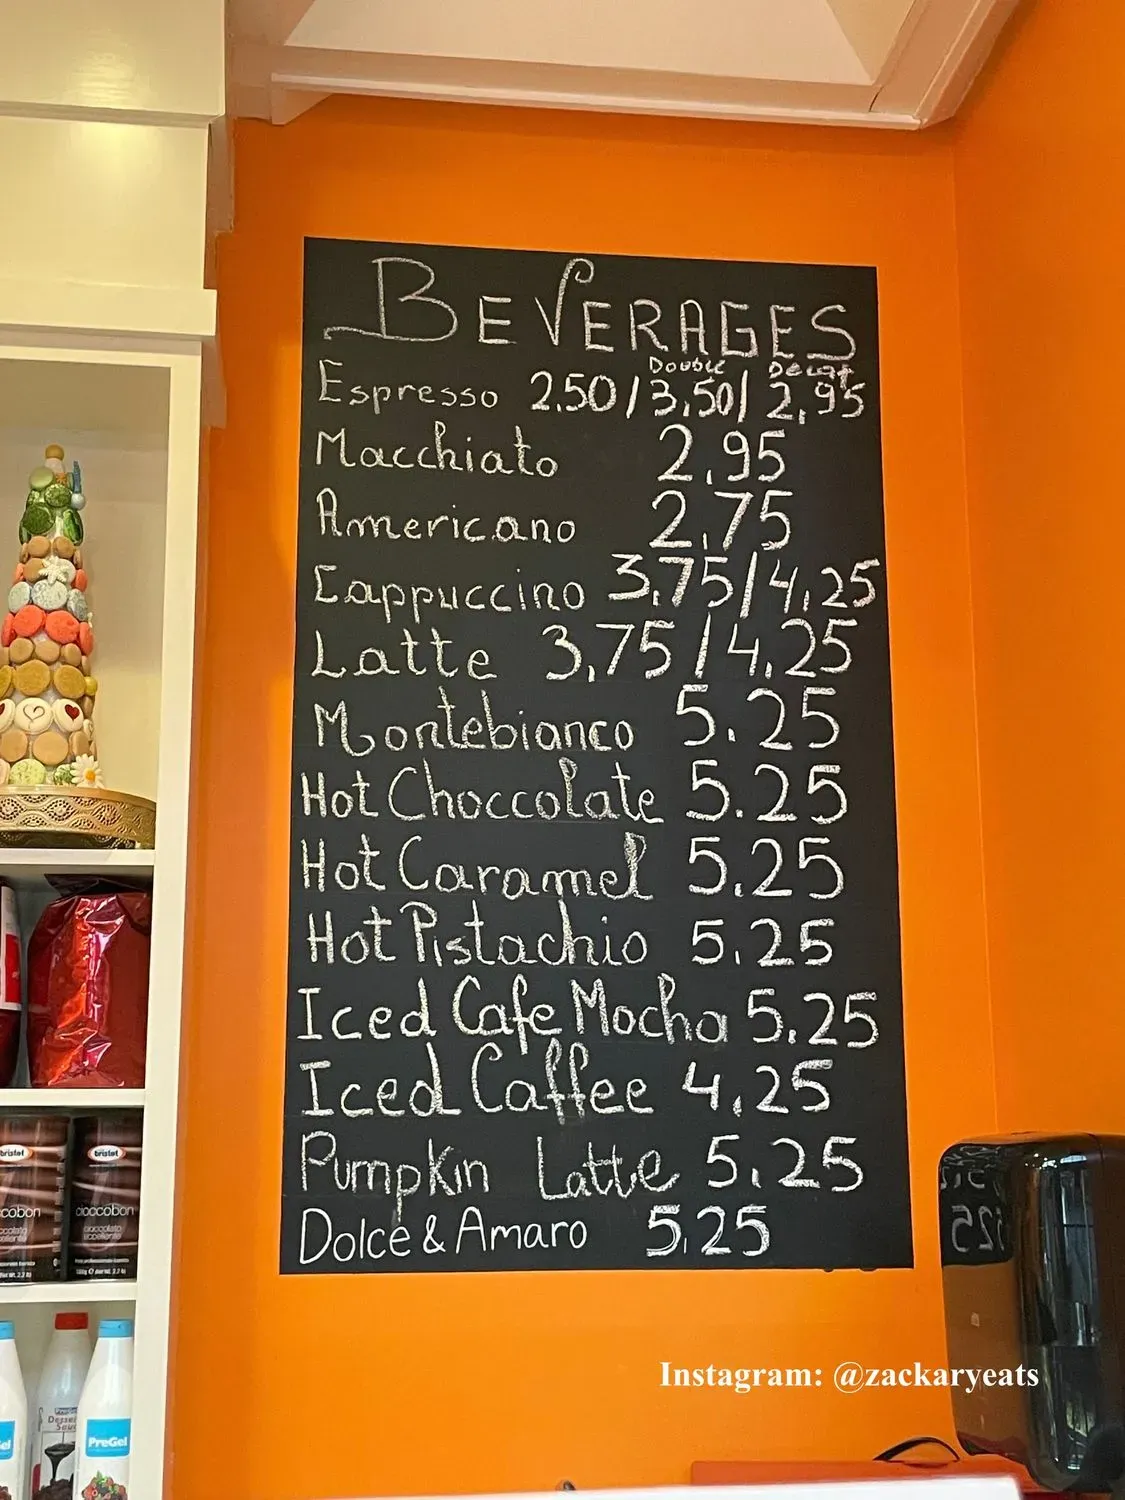 BEVERAGES
Double Decaf
Espresso 2.50/3.50/2.95
Macchiato 2.95
Americano 2.75
Cappuccino 3.75/4.25
Latte 3.75/4.25
Montebianco 5.25
Hot Choccolate 5.25
Hot Caramel 5.25
Hot Pistachio 5.25
Iced Cafe Mocha 5.25
Iced Caffee 4.25
Pumpkin Latte 5.25
Dolce & Amaro 5.25
bristot
bristot
cioccobon
PreGel
Instagram: @zackaryeats